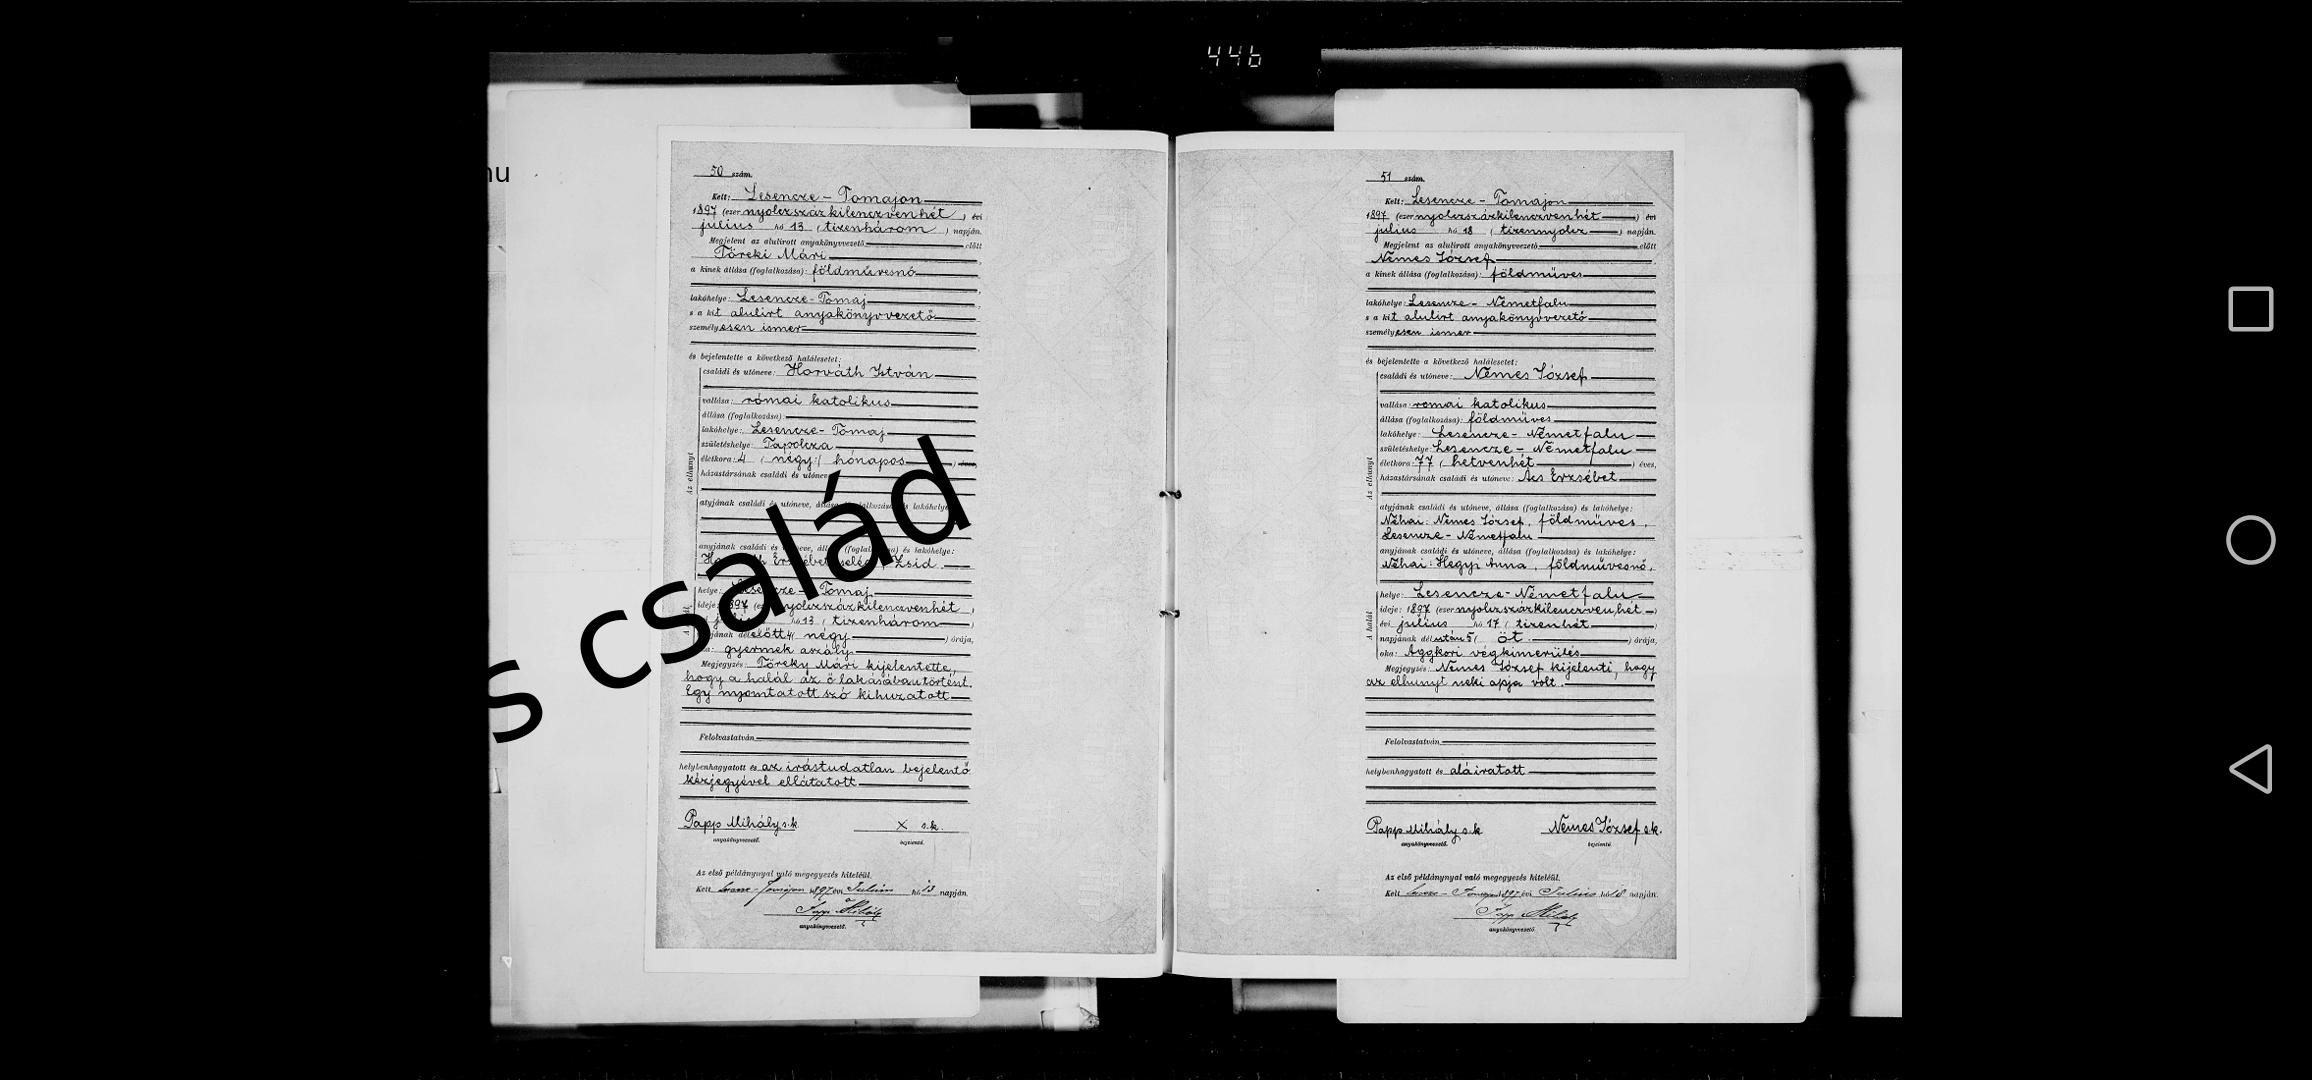 446
nu
s család
50 szám.
Kelt: Lesencze-Tomajon
1897 (ezer nyolczszázkilenczvenhét) évi
július hó 13 (tizenhárom) napján.
Megjelent az alulirott anyakönyvvezető előtt
Töreki Mári
a kinek állása (foglalkozása): földművesnő
lakóhelye: Lesencze-Tomaj
s a kit alulirt anyakönyvvezető
személyesen ismer
és bejelentette a következő halálesetet:
Az elhunyt
családi és utóneve: Horváth István
vallása: római katolikus
állása (foglalkozása):
lakóhelye: Lesencze-Tomaj
születéshelye: Tapolcza
életkora: 4 (négy) hónapos éves
házastársának családi és utóneve
atyjának családi és utóneve, állása (foglalkozása) és lakóhelye
anyjának családi és utóneve, állása (foglalkozása) és lakóhelye:
Horváth Erzsébet cseléd Zsid
helye: Lesencze-Tomaj
ideje: 1897 (ezer nyolczszázkilenczvenhét
évi július hó 13 (tizenhárom
napjának délelőtt 4 (négy) órája,
oka: gyermek aszály
Megjegyzés: Töreky Mári kijelentette,
hogy a halál az ő lakásában történt.
Egy nyomtatott szó kihuzatott
Felolvastatván
helybenhagyatott és az irástudatlan bejelentő
kézjegyével ellátatott
Papp Mihály s.k. X s.k.
anyakönyvvezető. bejelentő.
Az első példánynyal való megegyezés hiteléül.
Kelt Lesencze-Tomajon 1897 évi Julius hó 13 napján.
Papp Mihály
anyakönyvvezető.
51 szám.
Kelt: Lesencze-Tomajon
1897 (ezer nyolczszázkilenczvenhét) évi
július hó 18 (tizennyolcz) napján.
Megjelent az alulirott anyakönyvvezető előtt
Némes József
a kinek állása (foglalkozása): földmüves
lakóhelye: Lesencze-Németfalu
s a kit alulirt anyakönyvvezető
személyesen ismer
és bejelentette a következő halálesetet:
Az elhunyt
családi és utóneve: Némes József
vallása: romai katolikus
állása (foglalkozása): földmüves
lakóhelye: Lesencze-Németfalu
születéshelye: Lesencze-Németfalu
életkora: 77 (hetvenhét) éves,
házastársának családi és utóneve: Ács Erzsébet
atyjának családi és utóneve, állása (foglalkozása) és lakóhelye:
Néhai: Némes József, földmüves,
Lesencze-Németfalu
anyjának családi és utóneve, állása (foglalkozása) és lakóhelye:
Néhai: Hegyi Anna, földmüvesnő,
A halál
helye: Lesencze-Németfalu
ideje: 1897 (ezer nyolczszázkilenczvenhét)
évi július hó 17 (tizenhét)
napjának délután 5 (öt) órája,
oka: Aggkori végkimerülés
Megjegyzés: Némes József kijelenti, hogy
az elhunyt neki apja volt.
Felolvastatván
helybenhagyatott és aláiratott
Papp Mihály s.k. Némes József s.k.
anyakönyvvezető. bejelentő.
Az első példánynyal való megegyezés hiteléül.
Kelt Lesencze-Tomajon 1897 évi Julius hó 18 napján.
Papp Mihály
anyakönyvvezető.